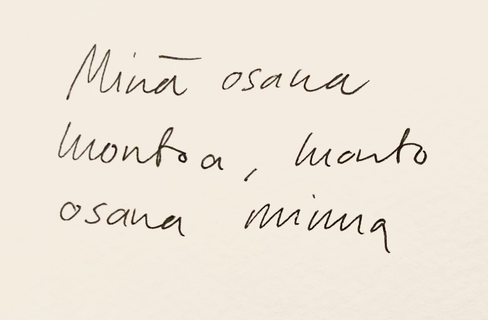 Minä osana
montoa, monto
osana minua